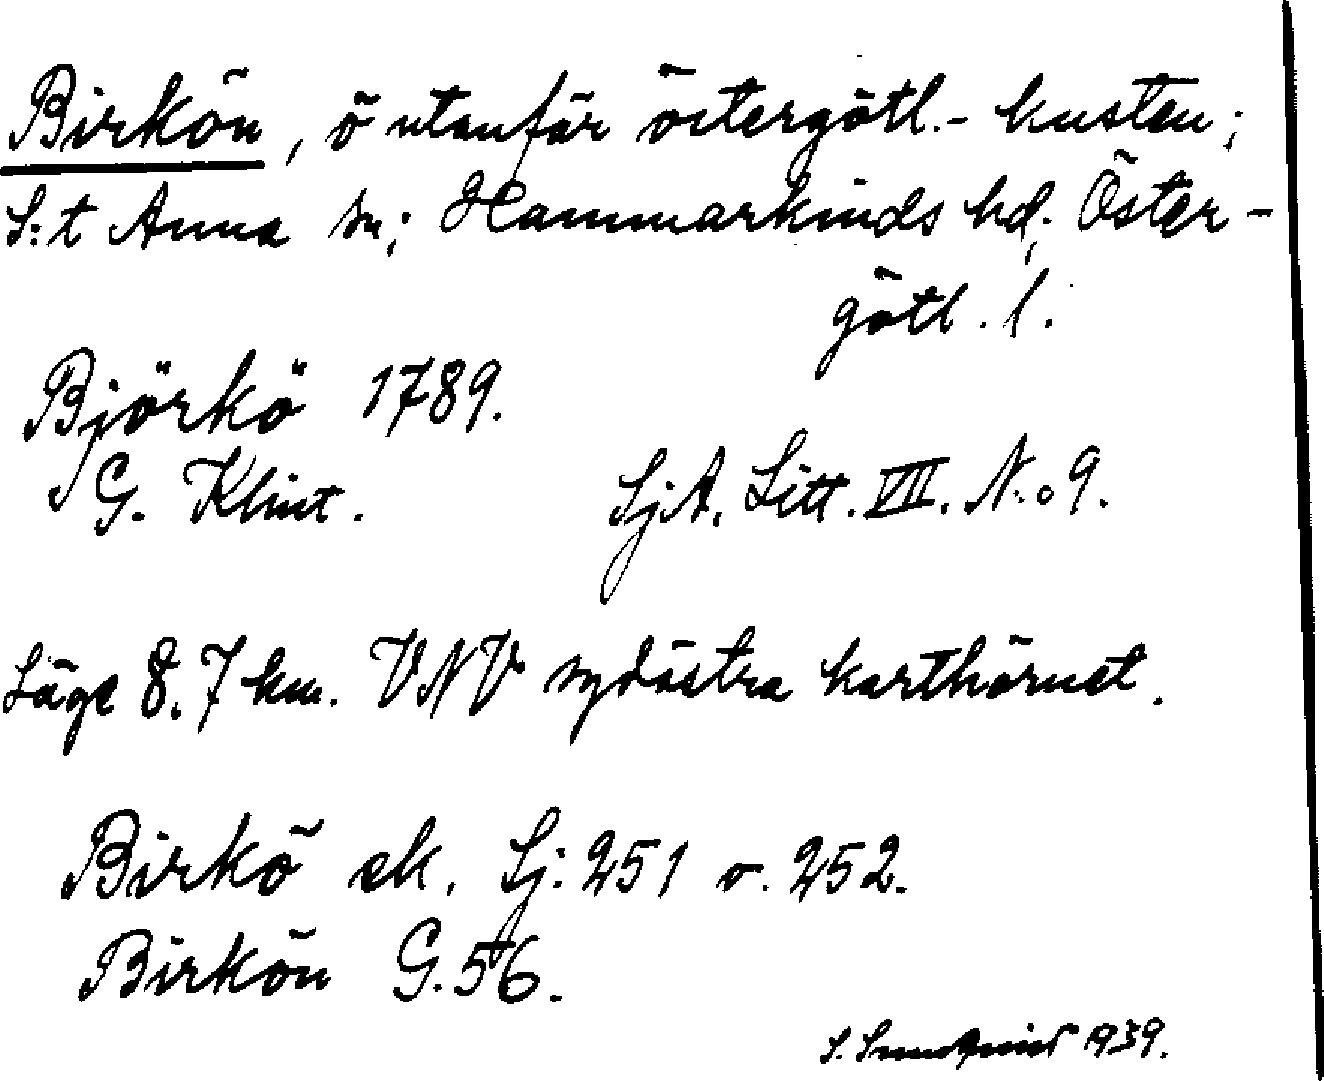 Birkön, ö utanför östergötl.- kusten;
S:t Anna sn; Hammarkinds hd; Öster-
götl. l.
Björkö 1789.
G. Klint. SjA. Litt. VII. N:o 9.
Läge 8.7 km. VNV sydöstra karthörnet.
Birkö ek. Sj: 251 o. 252.
Birkön G. 56.
S. 1939.